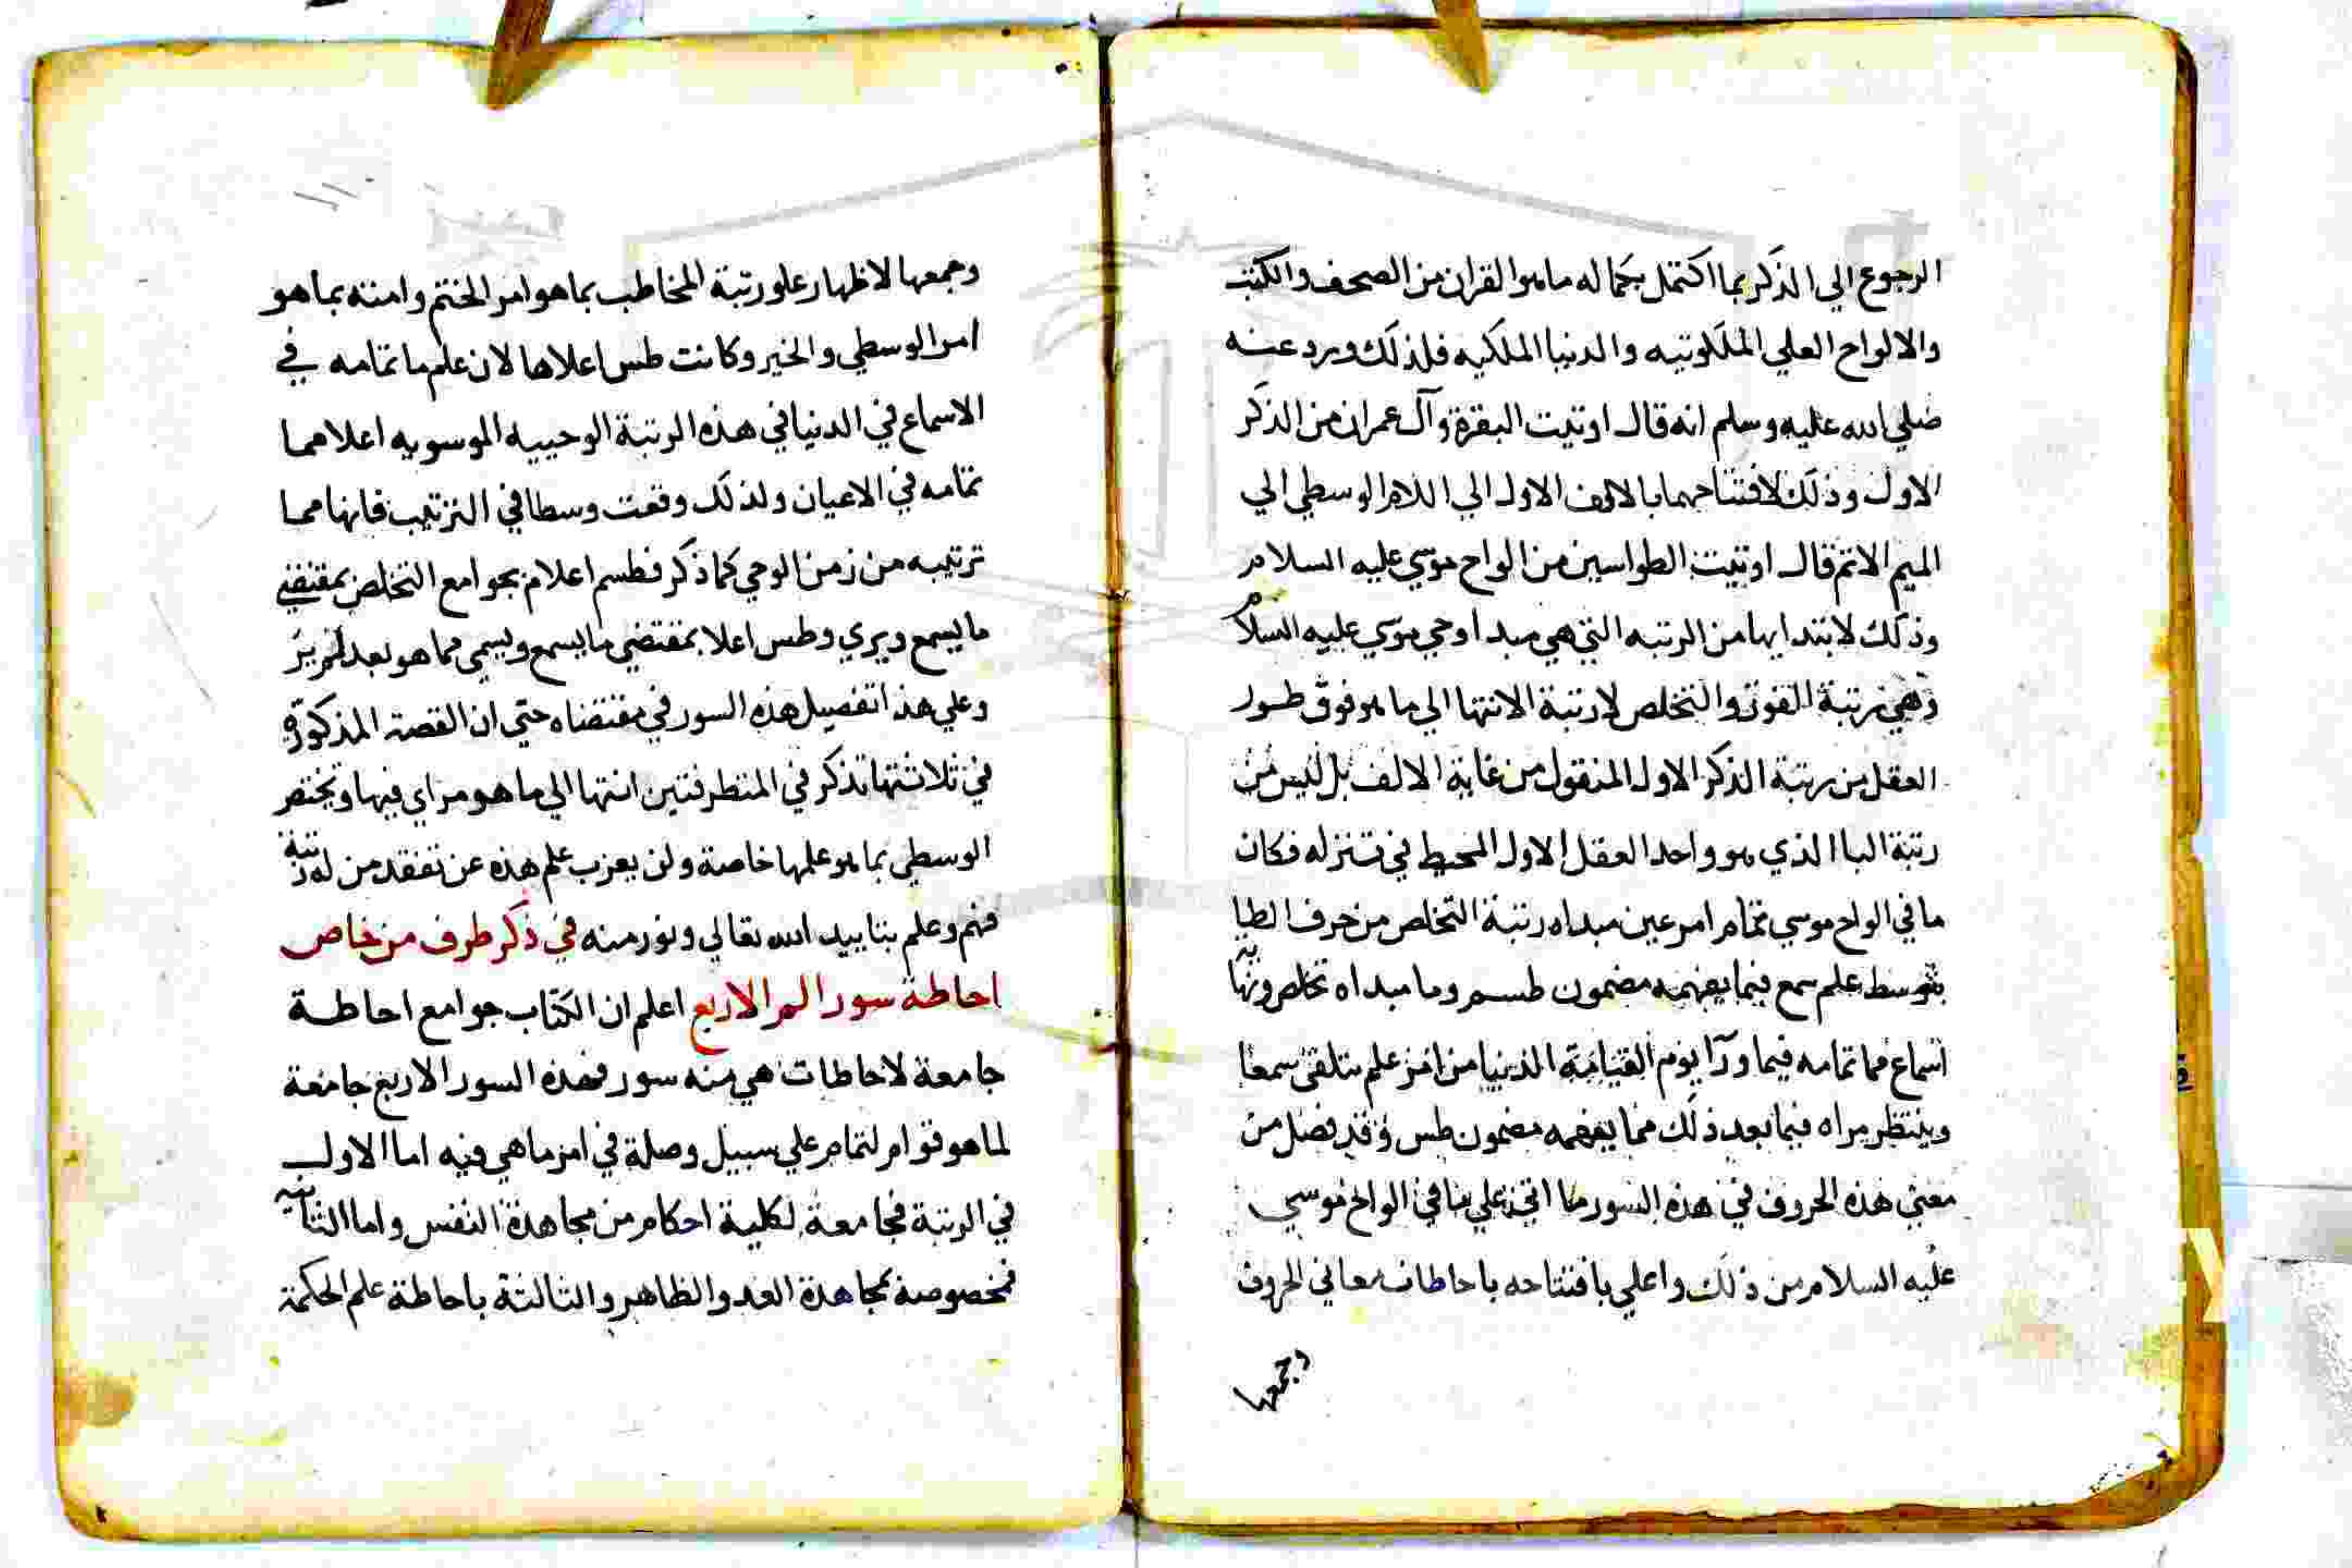 الرجوع الي الذكر بما اكتمل بجماله ما هو القران من الصحف والكتب
والالواح العلي الملكوتيه والدنيا الملكيه فلذلك ورد عنه
صلي الله عليه وسلم انه قال اوتيت البقرة وآل عمران من الذكر
الاول وذلك لافتتاحهما بالالف الاول الي اللام الوسطي الي
الميم الاتم قال اوتيت الطواسين من الواح موسي عليه السلام
وذلك لابتدايها من الرتبه التي هي مبدا وحي موسي عليه السلام
وهي رتبة الفوز والتخلص لا رتبة الانتها الي ما هو فوق طور
العقل من رتبة الذكر الاول المنقول من غاية الالف بل ليس من
رتبة البا الذي هو واحد العقل الاول المحيط في تنزله فكان
ما في الواح موسي تمام امر عين مبداه رتبة التخلص من حرف الطا
بتوسط علم سمع فيما يفهمه مضمون طسم وما مبداه تخلص ونهايته
اسماع مما تمامه فيما ورآ يوم القيامة الدنيا من امر علم يتلقي سمعا
وينتظر مراه فيما بعد ذلك مما يفهمه مضمون طس وقد فصل من
معني هذه الحروف في هذه السور ما اتي علي ما في الواح موسي
عليه السلام من ذلك واعلي بافتتاحه باحاطات معاني الحروف
وجمعها
وجمعها لاظهار علو رتبة المخاطب بما هو امر الختم وامته بما هو
امر الوسطي والخير وكانت طس اعلاها لان علم ما تمامه في
الاسماع في الدنيا في هذه الرتبة الوحييه الموسويه اعلا مما
تمامه في الاعيان ولذلك وقعت وسطا في الترتيب فانها مما
ترتيبه من زمن الوحي كما ذكر فطسم اعلام بجوامع التخلص بمقتضي
ما يسمع ويري وطس اعلا بمقتضي ما يسمع ويسمي مما هو بعد
وعلي هذا تفصيل هذه السور في مقتضاه حتي ان القصة المذكورة
في ثلاثتها تذكر في المتطرفتين انتها الي ما هو مراي فيها ويختصر
الوسطي بما هو علمها خاصة ولن يعزب علم هذه عن تفقد من له رتبة
فهم وعلم بتاييد الله تعالي ونور منه في ذكر طرف من خاص
احاطة سور المر الاربع اعلم ان الكتاب جوامع احاطة
جامعة لاحاطات هي منه سور فهذه السور الاربع جامعة
لما هو قوام لتمام علي سبيل وصلة في امر ما هي فيه اما الاول
في الرتبة فجامعة لكلية احكام من مجاهدة النفس واما الثانية
فمخصوصة بمجاهدة العدو الظاهر والثالثة باحاطة علم الحكمة